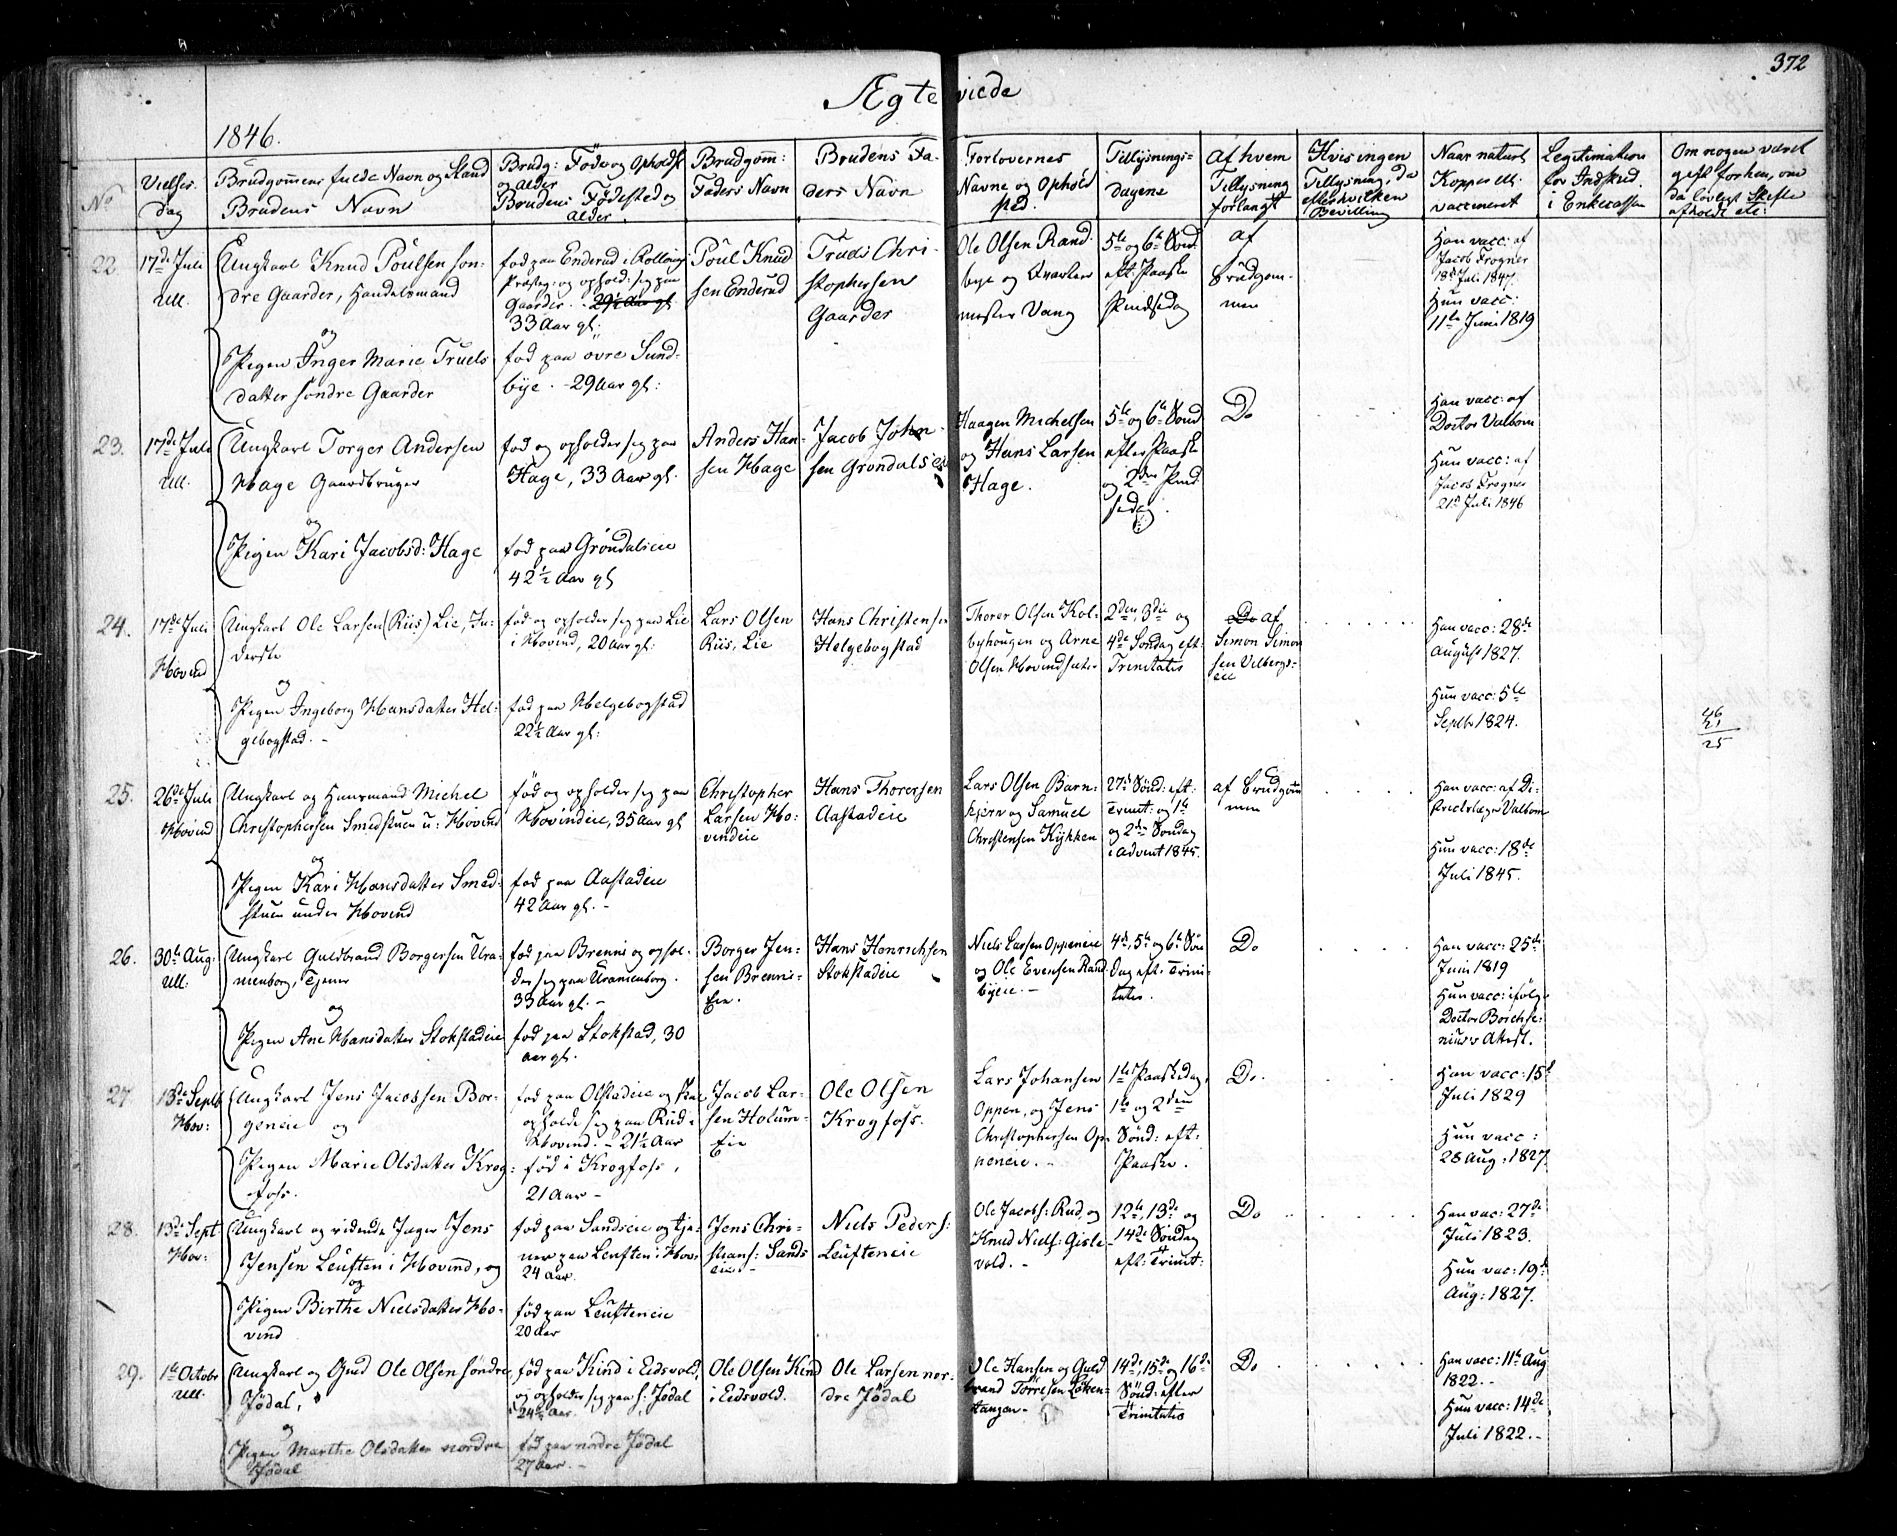 372
Ægteviede
1846.
No
Vielses
dag
Brudgommens fulde Navn og Stand
Brudens Navn
Brudg: Føde og Opholdst
og Alder
Brudens Fødested og
Alder
Brudgom:
Faders Navn
Brudens Fa-
ders Navn
Forlovernes
Navne og Ophold
sted.
Tillysnings-
dagene
Af hvem
Tillysning
forlangt
Hvis ingen
Tillysning, da
efter hvilken
Bevilling
Naar naturl.
Kopper ell.
vaccineret
Legitimation
for Indskud
i Enkecassen
Om nogen været
gift forhen, om
da lovligt Skifte
afholdt etc:
22
17de Juli
Ull.
Ungkarl Knud Poulsen søn-
dre Gaarder, Handelsmand
og
Pigen Inger Marie Truels
datter søndre Gaarder
fød paa Enderud i
Præsteg: og ophold: sig paa
Gaarder. 29½ Aar gl
33 Aar gl:
fød paa övre Sund-
bye. 29 Aar gl:
Poul Knud
sen Enderud
Truds Chri-
stophersen
Gaarder
Ole Olsen Rand
bye og
mester Vang
5te og 6te Sønd
eft: Paaske
Pindsedag
af
Brudgom-
men
Han vacc: af
Jacob Frogner
18de Juli 1847.
Hun vacc:
11te Juni 1819
23.
17de Juli
Ull.
Ungkarl Torger Andersen
Hage Gaardbruger
og
Pigen Kari Jacobsd: Hage
fød og opholder sig paa
Hage, 33 Aar gl.
fød paa Grøndalseie
42½ Aar gl
Anders Han-
sen Hage
Jacob John-
sen Grøndalseie
Haagen Michelsen
og Hans Larsen
Hage.
5te og 6te Sønd
efter Paaske
og 2den Pind
sedag.
Do
Han vacc: af
Doctor Valbom
Hun vacc: af
Jacob Frogner
21de Juli 1846
24.
17de Juli
Hovind
Ungkarl Ole Larsen (Riis) Lie, In-
derste
og
Pigen Ingeborg Hansdatter Hel-
gebogstad. -
fød og opholder sig paa Lie
i Hovind, 20 Aar gl:
fød paa Helgebogstad
22½ Aar gl:
Lars Olsen
Riis, Lie
Hans Christensen
Helgebogstad
Thorer Olsen Kol-
byhougen og Arne
Olsen Hovindsæter
2den, 3die og
4de Søndag eft:
Trinitatis
Do af
Simon Simon
sen Velbergs-
eie
Han vacc: 28de
August 1827.
Hun vacc: 5te
Septbr 1824.
46
21
25
25.
26de Juli
Hovind
Ungkarl og Huusmand Michel
Christophersen Smedstuen u: Hovind
og
Pigen Kari Hansdatter Smed-
stuen under Hovind
fød og opholder sig paa
Hovindeie, 35 Aar gl
fød paa Aastadeie
42 Aar gl. -
Christopher
Larsen Ho-
vindeie
Hans Thoresen
Aastadeie
Lars Olsen Barn-
kjern og Samuel
Christensen Kykken
27de Sønd: eft:
Trinit: og 1te
og 2den Søndag
i Advent 1845.
af Brudgom
men
Han vacc: af Di-
strictslæge Valbom
Hun vacc: 18de
Juli 1845.
26.
30te Aug:
Ull:
Ungkarl Guldbrand Borgersen Ura-
nienborg, Tjener
og
Pigen Ane Hansdatter Stokstadeie
fød paa Brennie og ophol-
der sig paa Uranienborg.
33 Aar gl. -
fød paa Stokstad, 30
Aar gl.
Borger Jen-
sen Brennie-
Eie.
Hans Henrichsen
Stokstadeie
Niels Larsen Oppeneie
og Ole Evensen Rand
byeie. -
4de, 5te og 6te Søn
dag eft: Trini-
tatis.
Do
Han vacc: 25de
Juni 1819
Hun vacc: ifølge
Doctor Borchse-
nius's Attest.
27.
13de Septb
Hov:
Ungkarl Jens Jacobsen Bor-
geneie og
Pigen Marie Olsdatter Krog-
foss.
fød paa Olstadeie og skal
opholde sig paa Rud i
Hovind. - 21½ Aar
fød i Krogfoss,
21 Aar -
Jacob Lar-
sen Holum-
Eie
Ole Olsen
Krogfoss.
Lars Johansen
Oppen, og Jens
Christophersen Op-
peneie. -
1te Paaskedag,
1te og 2den
Sønd: eft:
Paaske.
Do.
Han vacc: 15de
Juli 1829
Hun vacc:
28 Aug: 1827.
28.
13de Sept
Hov:
Ungkarl og ridende Jæger Jens
Jensen Leuften i Hovind, og
og
Pigen Birthe Nielsdatter Ho-
vind
fød paa Sandseie og tje-
ner paa Leuften i Hov:
24 Aar.
fød paa Leufteneie
20 Aar
Jens Chri-
stians: Sands
eie. -
Niels Peders:
Leufteneie
Ole Jacobs: Rud og
Knud Niels: Gisle-
vold. -
12te, 13de og
14de Søndag
eft: Trinit:
Do
Han vac: 27de
Juli 1823.
Hun vac: 19de
Aug: 1827.
29.
1te Octobr
Ull.
Ungkarl og Gmd Ole Olsen søndre
Jödal,
og
Pigen Marthe Olsdatter nordre
Jödal
fød paa Kind i Eidsvold,
og opholder sig paa s: Jödal
24½ Aar.
fød paa nordre Jödal
27 Aar. -
Ole Olsen Kind
i Eidsvold.
Ole Larsen nor-
dre Jödal
Ole Hansen og Guld
brand Torresen Löken-
tangen -
14de, 15de og 16de
Sønd: efter
Trinitatis
Do
Han vacc: 11te Aug
1822. -
Hun vacc: 14de
Juli 1822. -